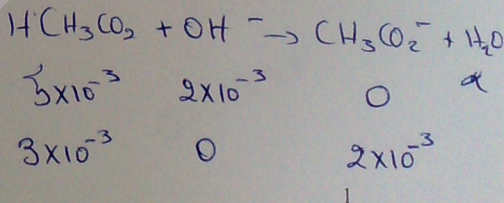 HCH₃CO₂ + OH⁻ → CH₃CO₂⁻ + H₂O
5×10⁻³ 2×10⁻³ 0
3×10⁻³ 0 2×10⁻³